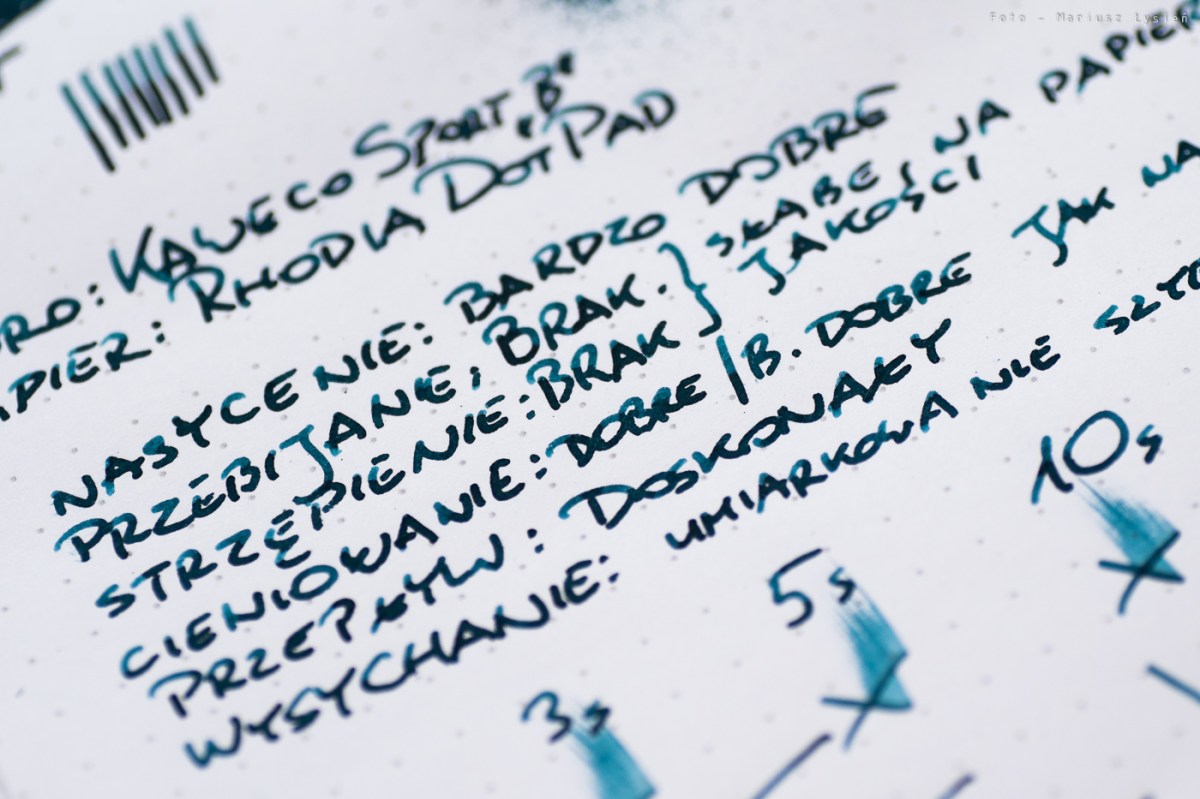 Foto - Mariusz Łysień
KAWECO SPORT „B"
RHODIA DOT PAD
NASYCENIE: BARDZO DOBRE
PRZEBIJANIE: BRAK. } SŁABEJ NA
STRZĘPIENIE: BRAK } JAKOŚCI
CIENIOWANIE: DOBRE / B. DOBRE JAK NA
PRZEPŁYW: DOSKONAŁY
WYSYCHANIE: UMIARKOWANIE
10s
5s
3s